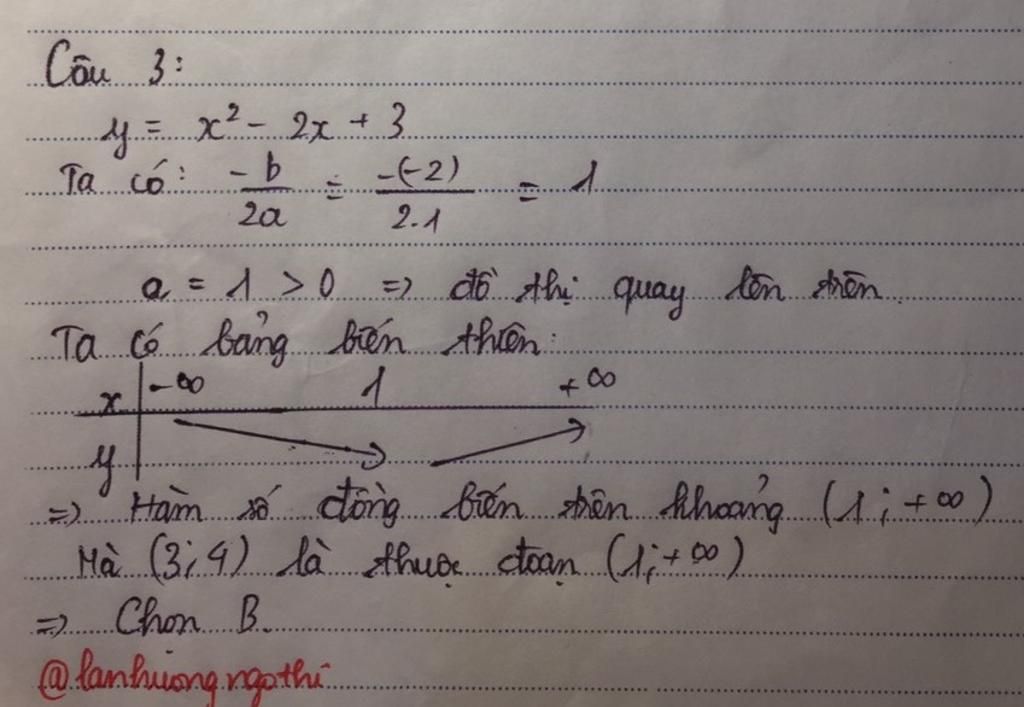 Câu 3:
y = x² - 2x + 3
Ta có: -b/2a = -(-2)/2.1 = 1
a = 1 > 0 => đồ thị quay lên trên.
Ta có bảng biến thiên:
x -∞ 1 +∞
y
=> Hàm số đồng biến trên khoảng (1; +∞)
Mà (3; 4) là thuộc đoạn (1; +∞)
=> Chọn B.
@lanhuongngothi